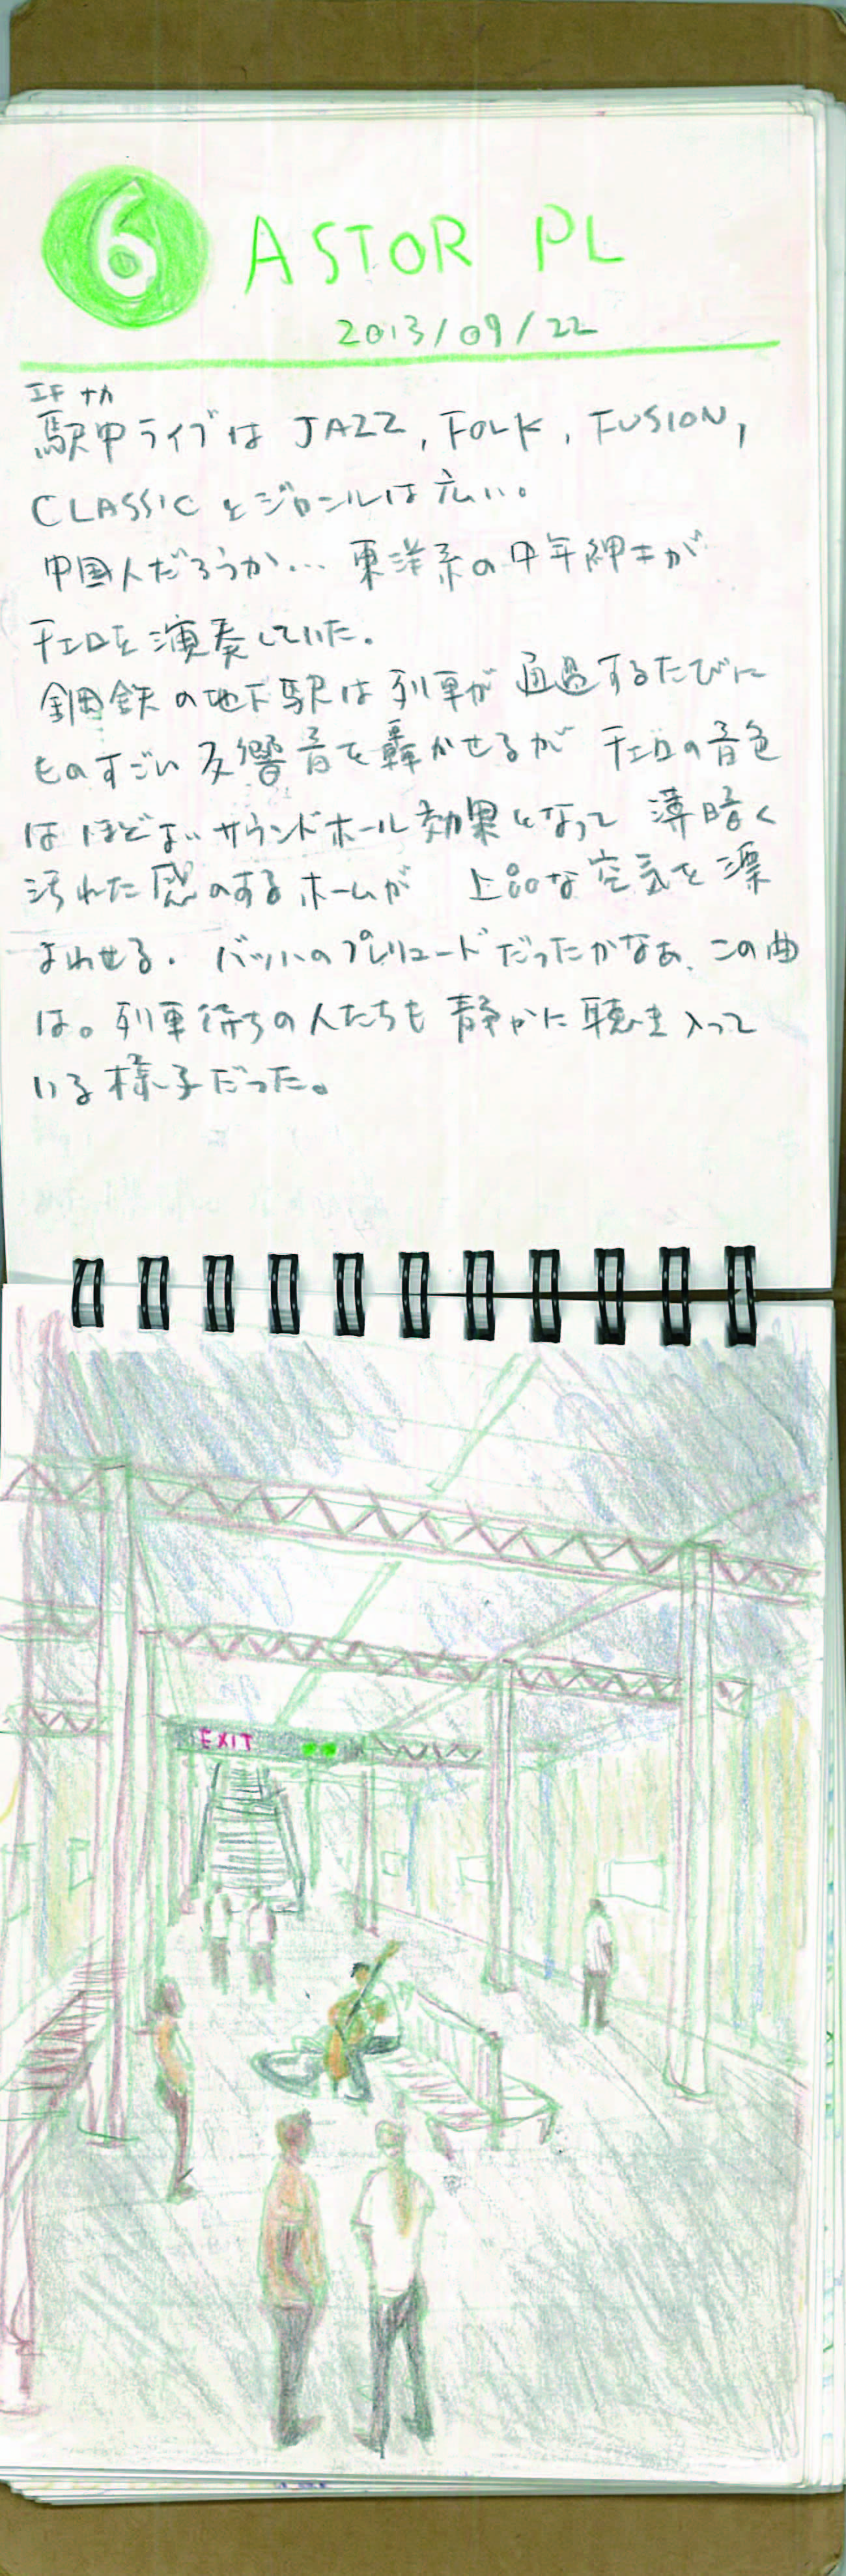 6 ASTOR PL
2013/09/22
エキ ナカ
駅中ライブは JAZZ, FOLK, FUSION,
CLASSIC とジャンルは広い。
中国人だろうか… 東洋系の中年紳士が
チェロを演奏していた。
鋼鉄の地下駅は列車が通過するたびに
ものすごい反響音を轟かせるが チェロの音色
はほどよいサウンドホール効果となって 薄暗く
汚れた感のするホームが 上品な空気を漂
よわせる。バッハのプレリュードだったかなぁ、この曲
は。列車待ちの人たちも静かに聴き入って
いる様子だった。
EXIT